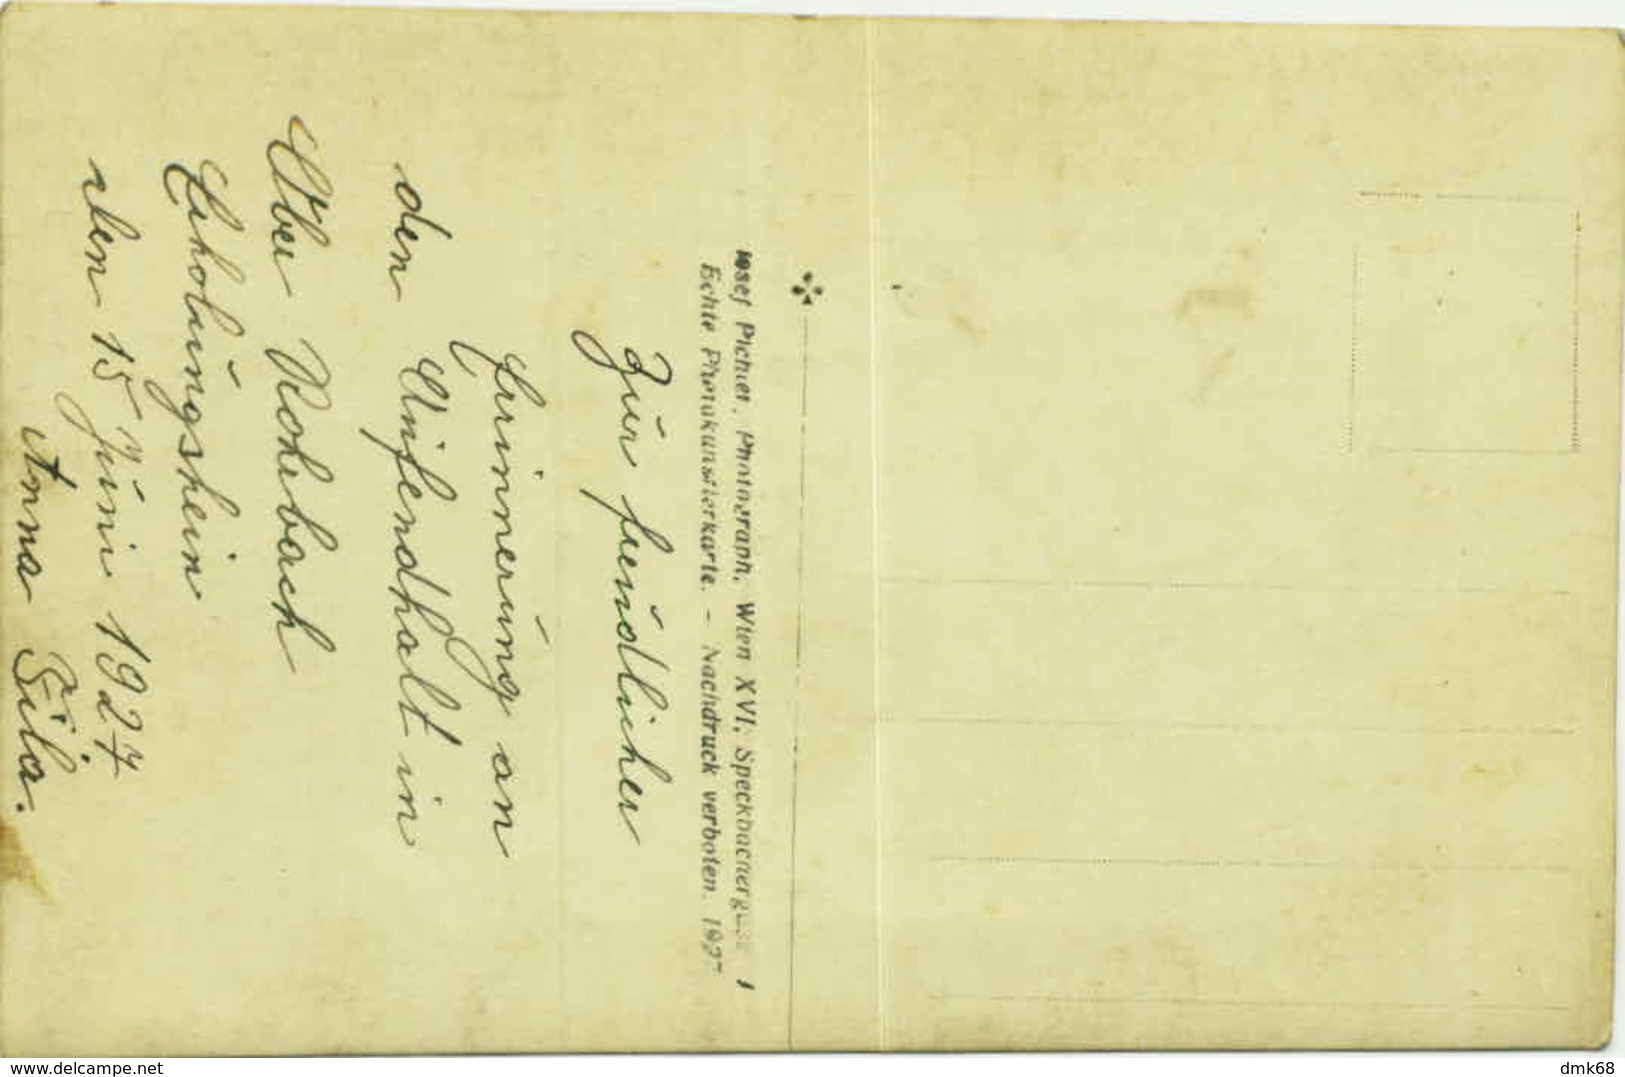 Josef Pichler, Photograph, Wien XVI, Speckbachergasse
Echte Photokunstlerkarte. – Nachdruck verboten. 1927
Zur freundlicher
Erinnerung an
den Aufendhalt in
Ober Rohrbach
Erholungsheim
den 15 Juni 1927
Anna Šila.
delcampe.net
dmk68